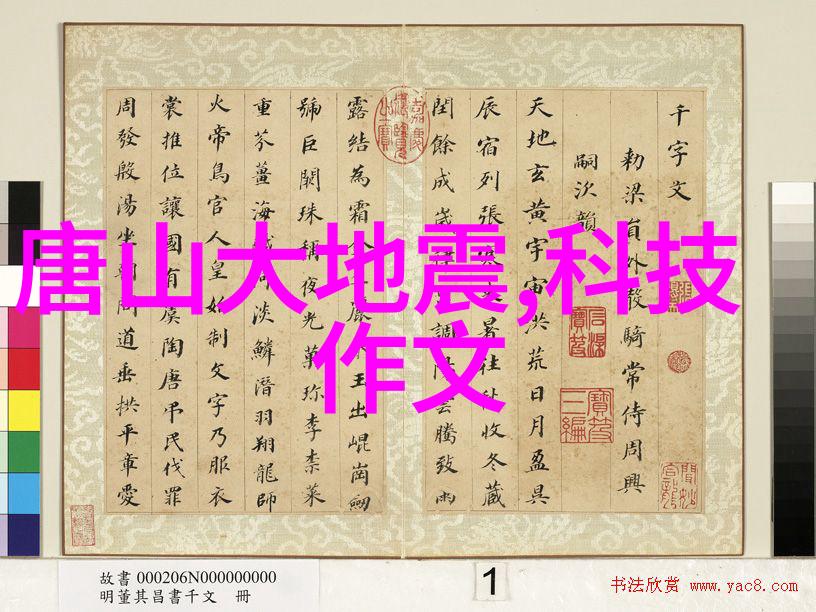 唐山大地震,科技
作文
千字文
勑梁員外散騎常侍周興
嗣次韻
天地玄黃宇宙洪荒日月盈昃
辰宿列張暑往收冬藏
閏餘成歲調雲騰致雨
露結為霜玉出崐崗劒
號巨闕珠稱夜光菓珍李柰菜
重芥薑海河淡鱗潛羽翔龍師
火帝鳥官人皇始制文字乃服衣
裳推位讓國有虞陶唐弔民伐罪
周發殷湯坐朝問道垂拱平章愛
故書 000206N000000000
明董其昌書千文 冊
1
书法欣赏 www.yac8.com